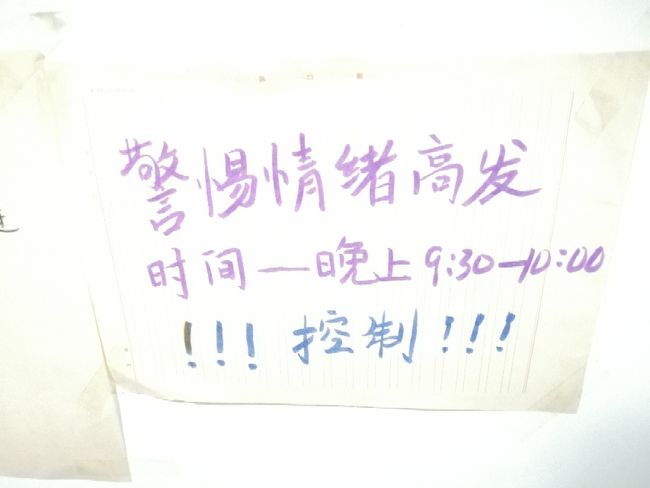 警惕情绪高发
时间—晚上9:30—10:00
!!!控制!!!